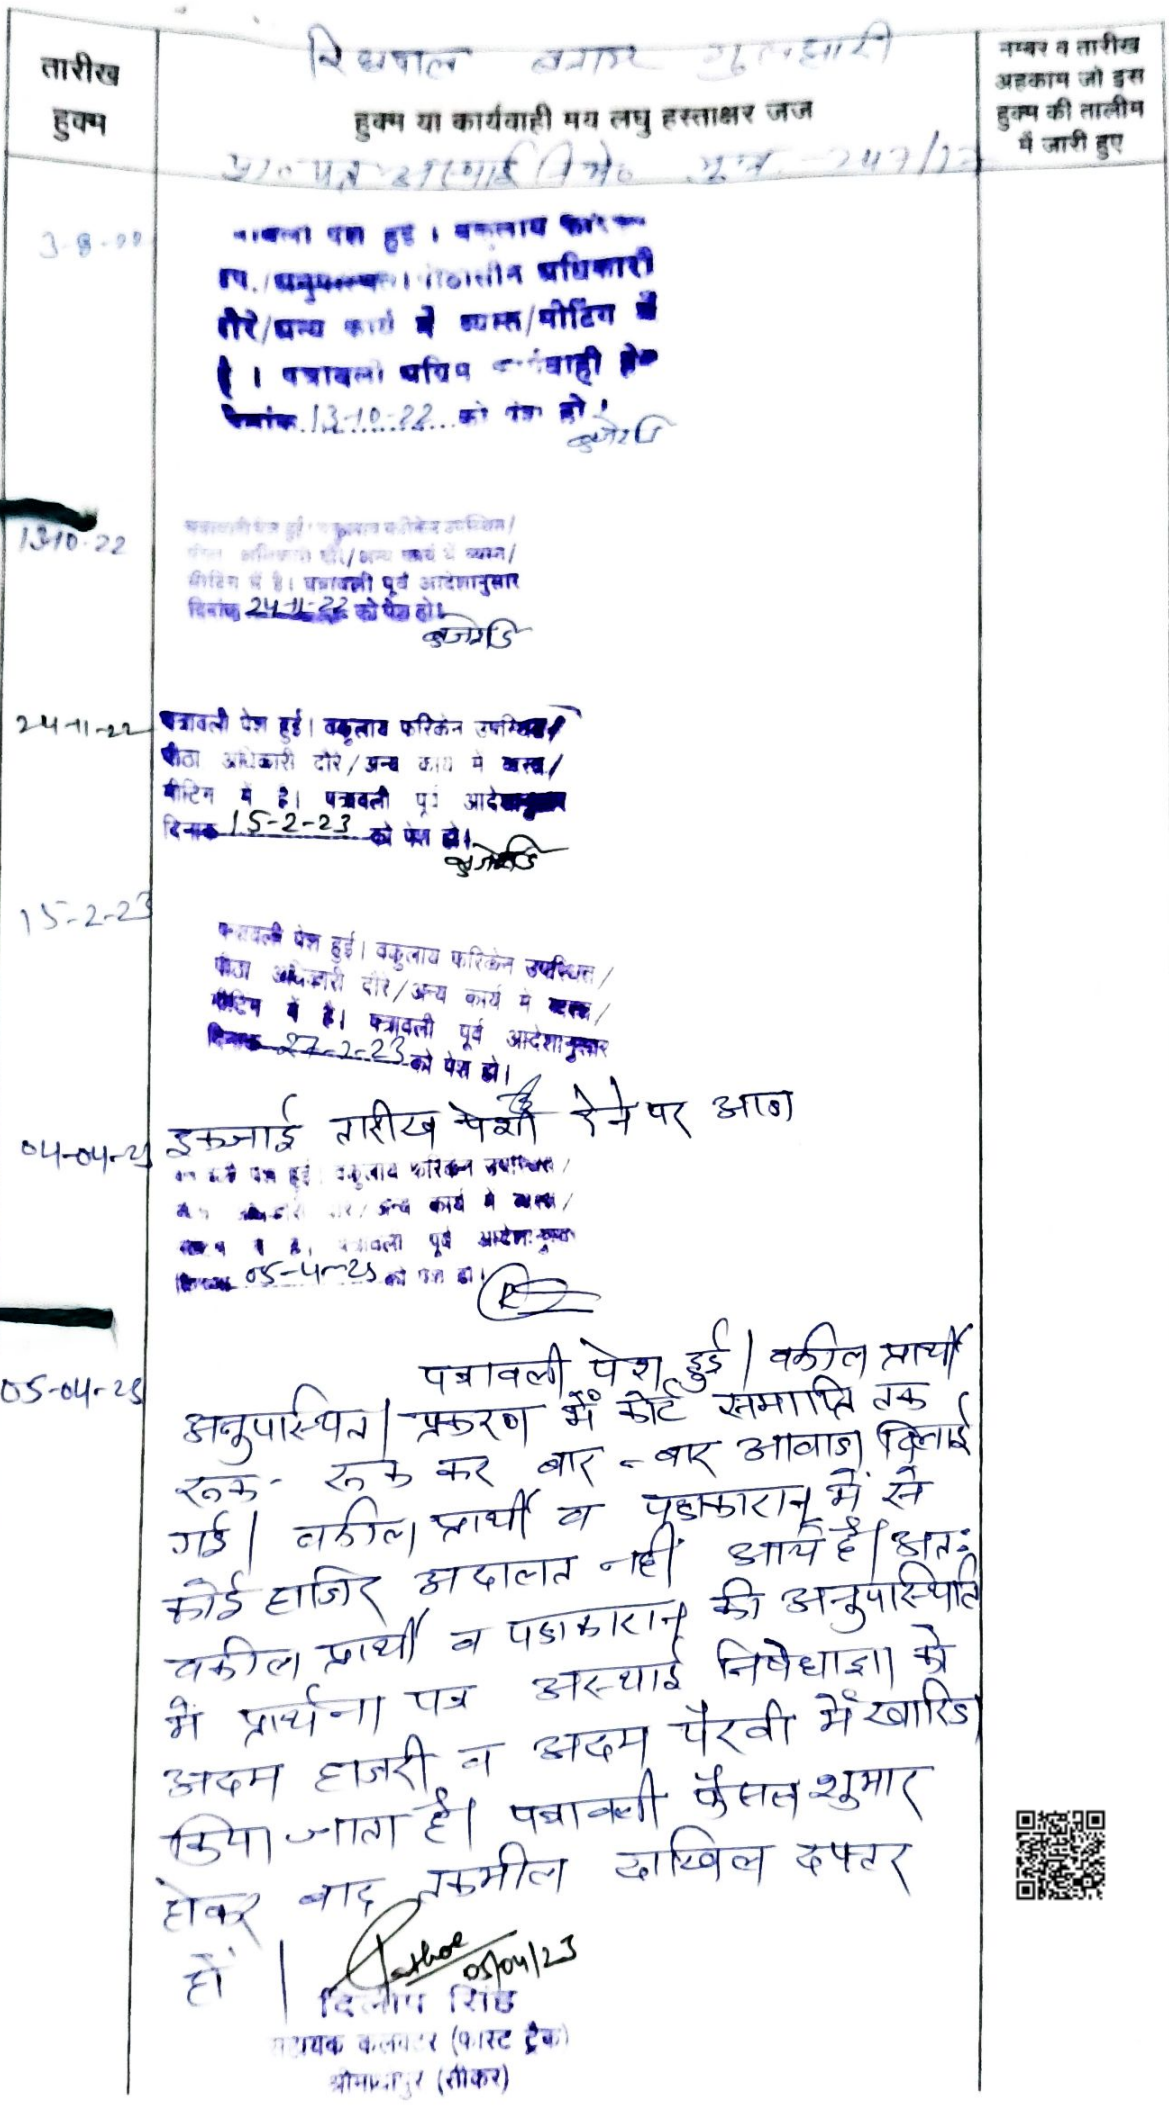 तारीख
हुक्म
रिधपाल बनाम गुलझारी
हुक्म या कार्यवाही मय लघु हस्ताक्षर जज
नम्बर व तारीख
अहकाम जो इस
हुक्म की तालीम
में जारी हुए
प्रा० पत्र अस्थाई नि०
3-8-22
पेश हुई । वकुलाय
अधिकारी
दौरे/अन्य कार्य में व्यस्त/मीटिंग में
है । पत्रावली
दिनांक 13-10-22 को पेश हो ।
13-10-22
पत्रावली पेश हुई। वकुलाय फरिकेन उपस्थित/
अधिकारी दौरे/अन्य कार्य में व्यस्त/
मीटिंग में है। पत्रावली पूर्व आदेशानुसार
दिनांक 24-11-22 को पेश हो।
24-11-22
पत्रावली पेश हुई। वकुलाय फरिकेन उपस्थित/
पीठा अधिकारी दौरे/अन्य कार्य में व्यस्त/
मीटिंग में है। पत्रावली पूर्व आदेशानुसार
दिनांक 15-2-23 को पेश हो।
15-2-23
पत्रावली पेश हुई। वकुलाय फरिकेन उपस्थित/
पीठा अधिकारी दौरे/अन्य कार्य में व्यस्त/
मीटिंग में है। पत्रावली पूर्व आदेशानुसार
दिनांक 27-2-23 को पेश हो।
इकजाई तारीख पेशी देने पर आज
04-04-23
पेश हुई। वकुलाय फरिकेन उपस्थित/
अन्य कार्य में व्यस्त/
में है। पत्रावली पूर्व आदेशानुसार
दिनांक 05-4-23 को पेश हो।
05-04-23
पत्रावली पेश हुई। वकील प्रार्थी
अनुपस्थित। प्रकरण में कोर्ट समाप्ति तक
रूक- रूक कर बार-बार आवाज दिलाई
गई। वकील प्रार्थी व पक्षकारान् में से
कोई हाजिर अदालत नहीं आये है। अतः
वकील प्रार्थी व पक्षकारान् की अनुपस्थिति
में प्रार्थना पत्र अस्थाई निषेधाज्ञा को
अदम हाजरी व अदम पैरवी में खारिज
किया जाता है। पत्रावली फैसल शुमार
होकर बाद तकमील दाखिल दफ्तर
हो।
05/04/23
दिलीप सिंह
सहायक कलक्टर (फास्ट ट्रैक)
श्रीमाधोपुर (सीकर)